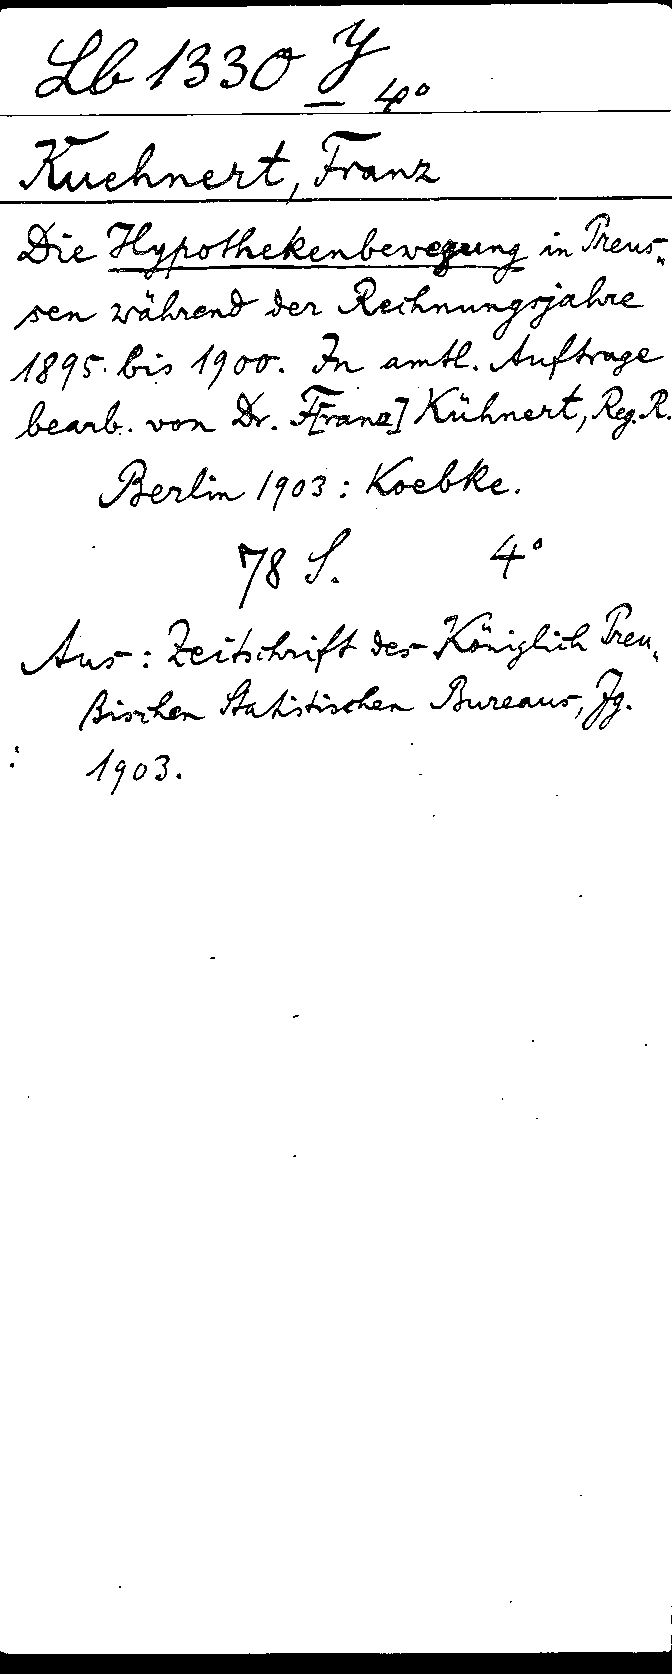 Lb 1330 y 4°
Kuehnert, Franz
Die Hypothekenbewegung in Preus-
sen während der Rechnungsjahre
1895 bis 1900. In amtl. Auftrage
bearb. von Dr. F[ranz] Kühnert, Reg. R.
Berlin 1903: Koebke.
78 S. 4°
Aus: Zeitschrift des Königlich Preu-
ßischen Statistischen Bureaus, Jg.
1903.